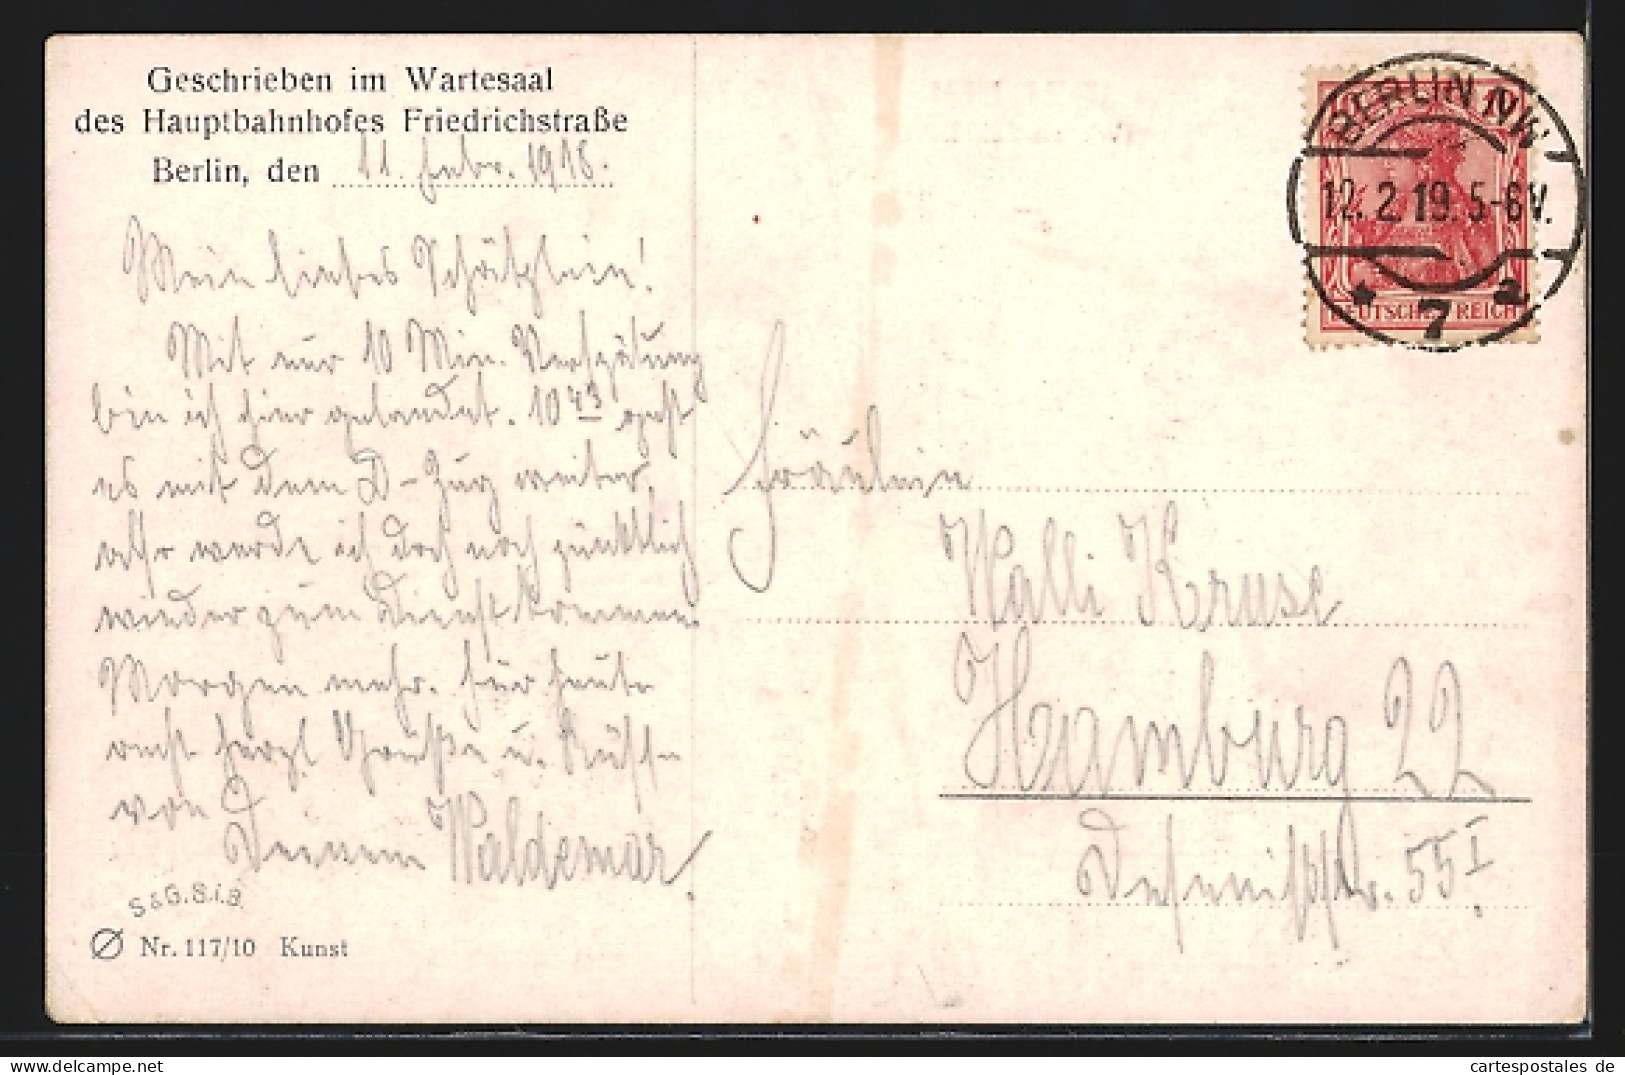 Geschrieben im Wartesaal
des Hauptbahnhofes Friedrichstraße
Berlin, den 11. Febr. 1918.
Mein liebes Schätzlein!
Mit nur 10 Min. Verspätung
bin ich hier gelandet. 10 43 geht
es mit dem D-Zug weiter,
also werde ich doch noch pünktlich
wieder zum Dienst kommen.
Morgen mehr. Für heute
recht herzl Grüße u. Küsse
von
Deinem Waldemar.
S&G.S.i.B.
Nr. 117/10 Kunst
BERLIN NW
12. 2. 19. 5-6 V.
* 7 a
DEUTSCHES REICH
Fräulein
Walli Kruse
Hamburg 22
55 I.
cartespostales de